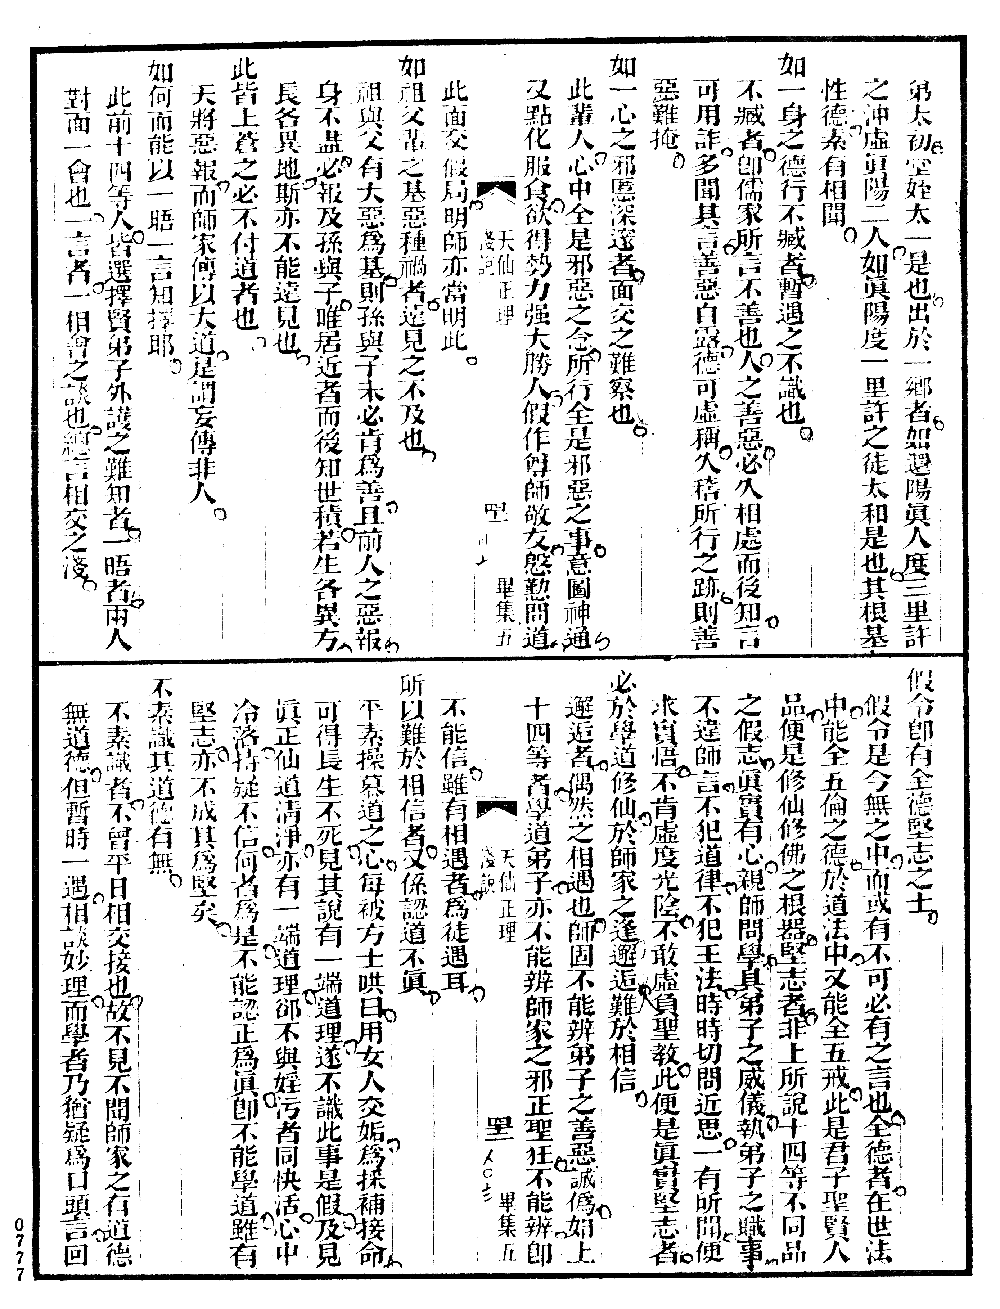 弟太初堂姪太一是也出於一鄉者如還陽眞人度三里許
之沖虛眞陽一人如眞陽度一里許之徒太和是也其根基
性德素有相聞
如一身之德行不臧者暫遇之不識也
不臧者卽儒家所言不善也人之善惡必久相處而後知言
可用詐多聞其言善惡自露德可虛稱久稽所行之跡則善
惡難掩
如一心之邪慝深邃者面交之難察也
此輩人心中全是邪惡之念所行全是邪惡之事意圖神通
及點化服食欲得勢力强大勝人假作尊師敬友慇懃問道
天仙正理
淺說
畢集五
此面交假局明師亦當明此
如祖父輩之基惡種禍者遠見之不及也
祖與父有大惡爲基則孫與子未必肯爲善且前人之惡報
身不盡必報及孫與子唯居近者而後知世積若生各異方
長各異地斯亦不能遠見也
此皆上蒼之必不付道者也
天將惡報而師家傳以大道是謂妄傳非人
如何而能以一晤一言知擇耶
此前十四等人皆選擇賢弟子外護之難知者一晤者兩人
對面一會也一言者一相會之談也總言相交之淺
假令卽有全德堅志之士
假令是今無之中而或有不可必有之言也全德者在世法
中能全五倫之德於道法中又能全五戒此是君子聖賢人
品便是修仙修佛之根器堅志者非上所說十四等不同品
之假志眞實有心親師問學具弟子之威儀執弟子之職事
不違師言不犯道律不犯王法時時切問近思一有所聞便
求實悟不肯虛度光陰不敢虛負聖敎此便是眞實堅志者
必於學道修仙於師家之逢邂逅難於相信
邂逅者偶然之相遇也師固不能辨弟子之善惡誠僞如上
十四等者學道弟子亦不能辨師家之邪正聖狂不能辨卽
天仙正理
淺說
畢集五
不能信雖有相遇者爲徒遇耳
所以難於相信者又係認道不眞
平素操慕道之心每被方士哄曰用女人交姤爲採補接命
可得長生不死見其說有一端道理遂不識此事是假及見
眞正仙道清淨亦有一端道理郤不與婬污者同快活心中
冷落持疑不信何者爲是不能認正爲眞卽不能學道雖有
堅志亦不成其爲堅矣
不素識其道德有無
不素識者不曾平日相交接也故不見不聞師家之有道德
無道德但暫時一遇相談妙理而學者乃猶疑爲口頭言回
0777